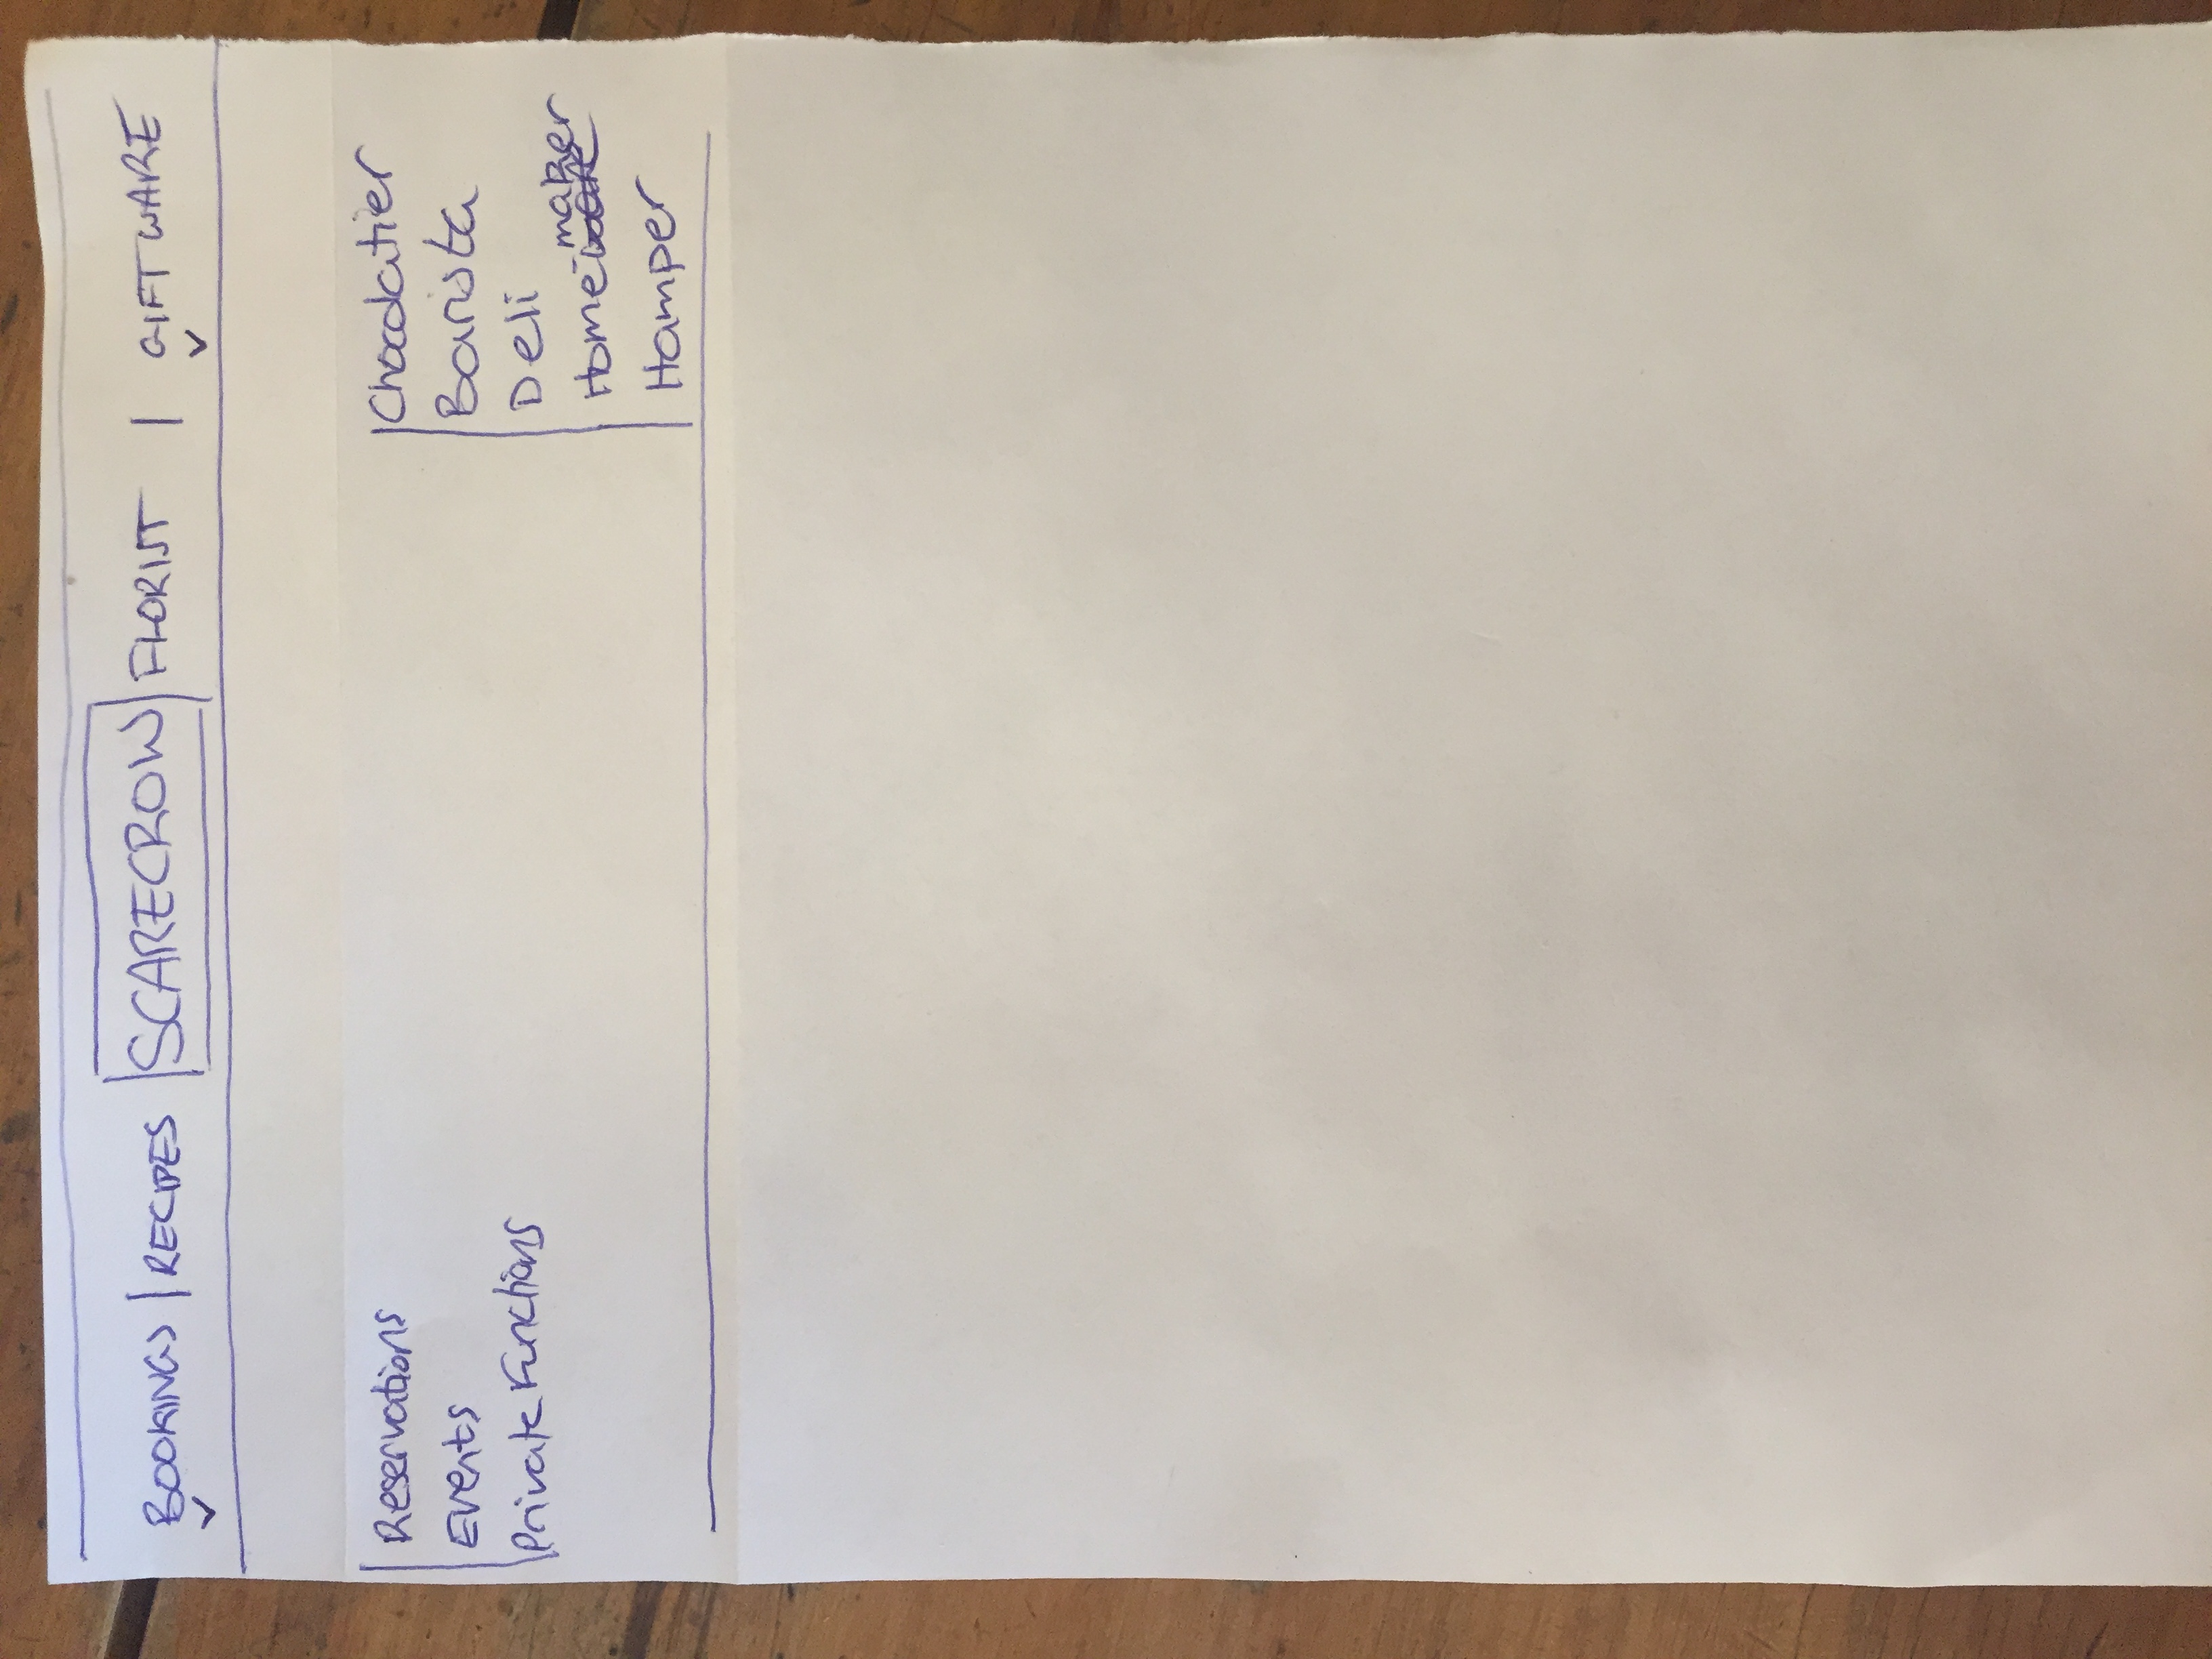 BOOKINGS | RECIPES | SCARECROW | FLORIST | GIFTWARE
Reservations
Events
Private Functions
Chocolatier
Barista
Deli
Home-maker
Hamper